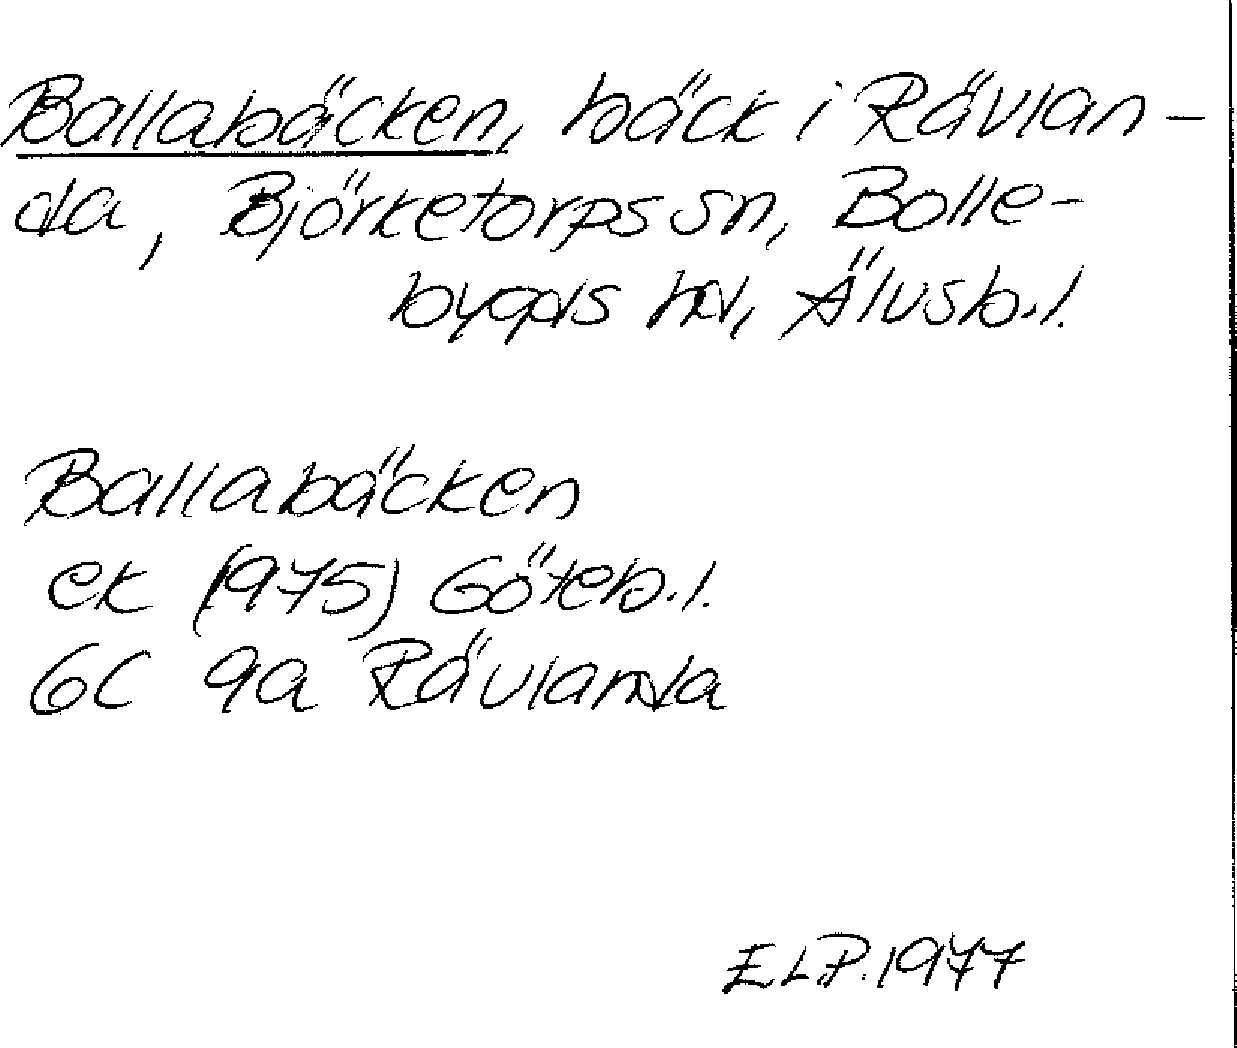 Ballabäcken, bäck i Rävlan-
da, Björketorps sn, Bolle-
bygds hd, Älvsb.l.
Ballabäcken
ek (1975) Göteb.l.
6C 9a Rävlanda
ELP.1977